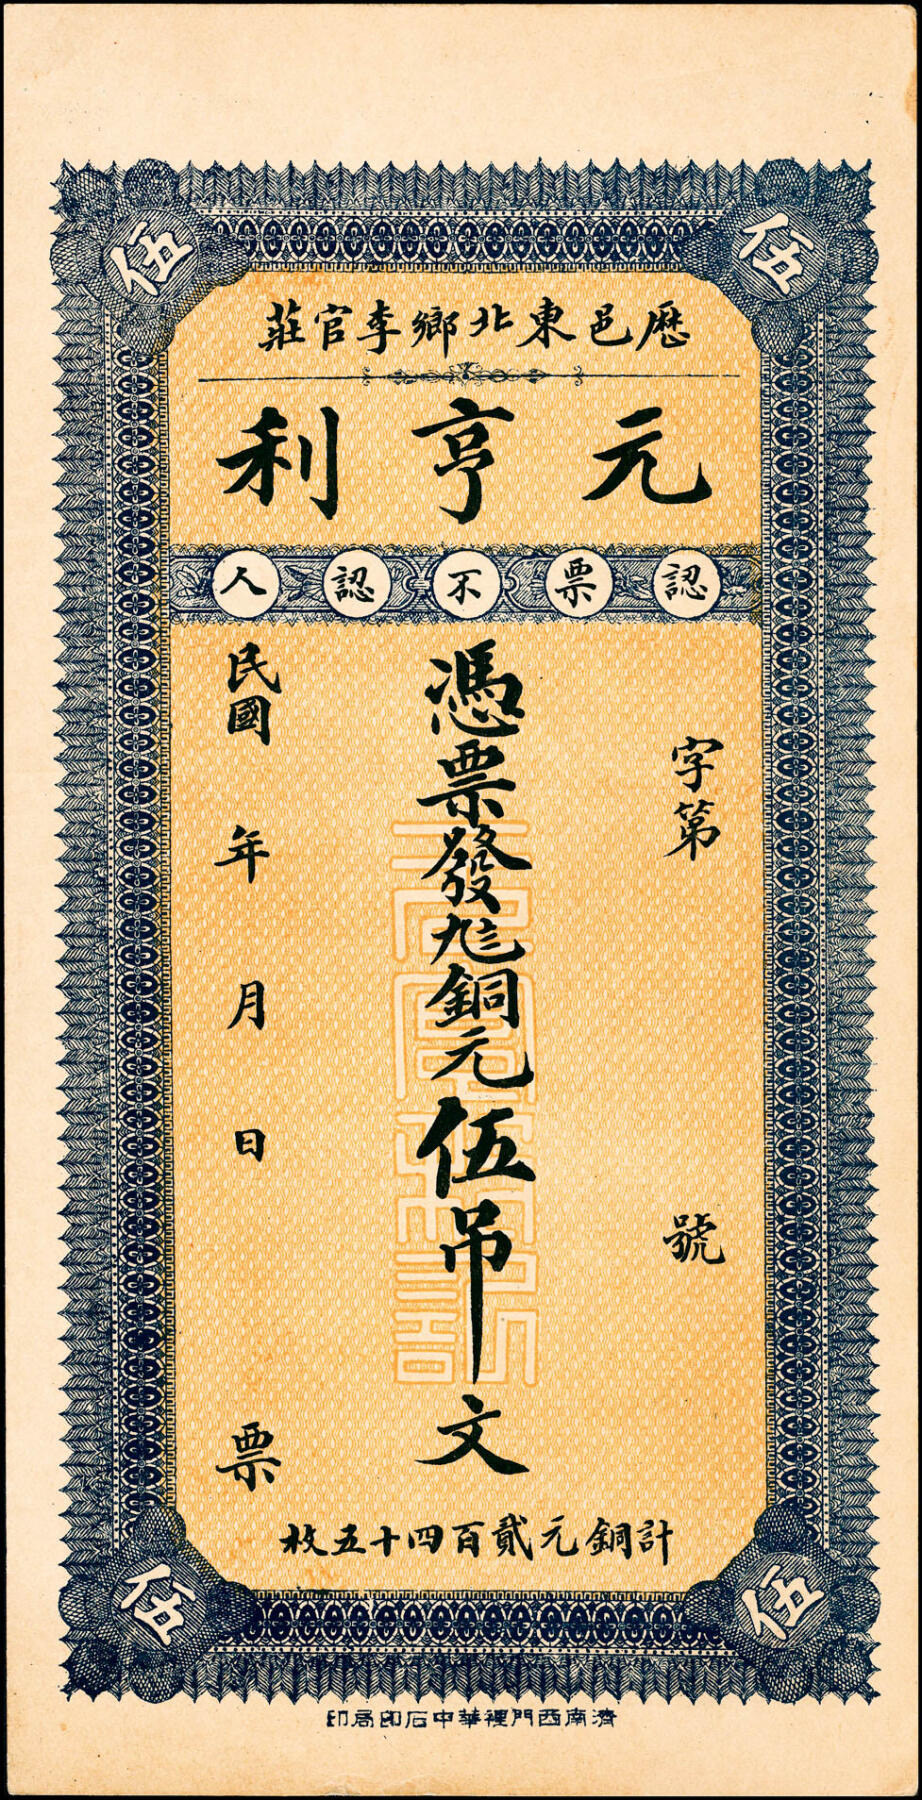 伍 伍
厯邑東北鄉李官莊
元亨利
認票不認人
字第 號
憑票發九〨銅元伍吊文
民國 年 月 日 票
計銅元貳百四十五枚
伍 伍
濟南西門裡華中石印局印